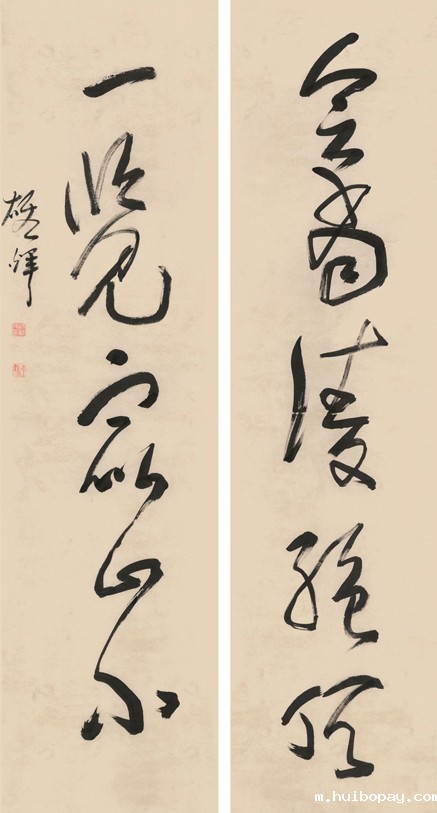 會當凌絕頂
一覽眾山小
m.huibopay.com